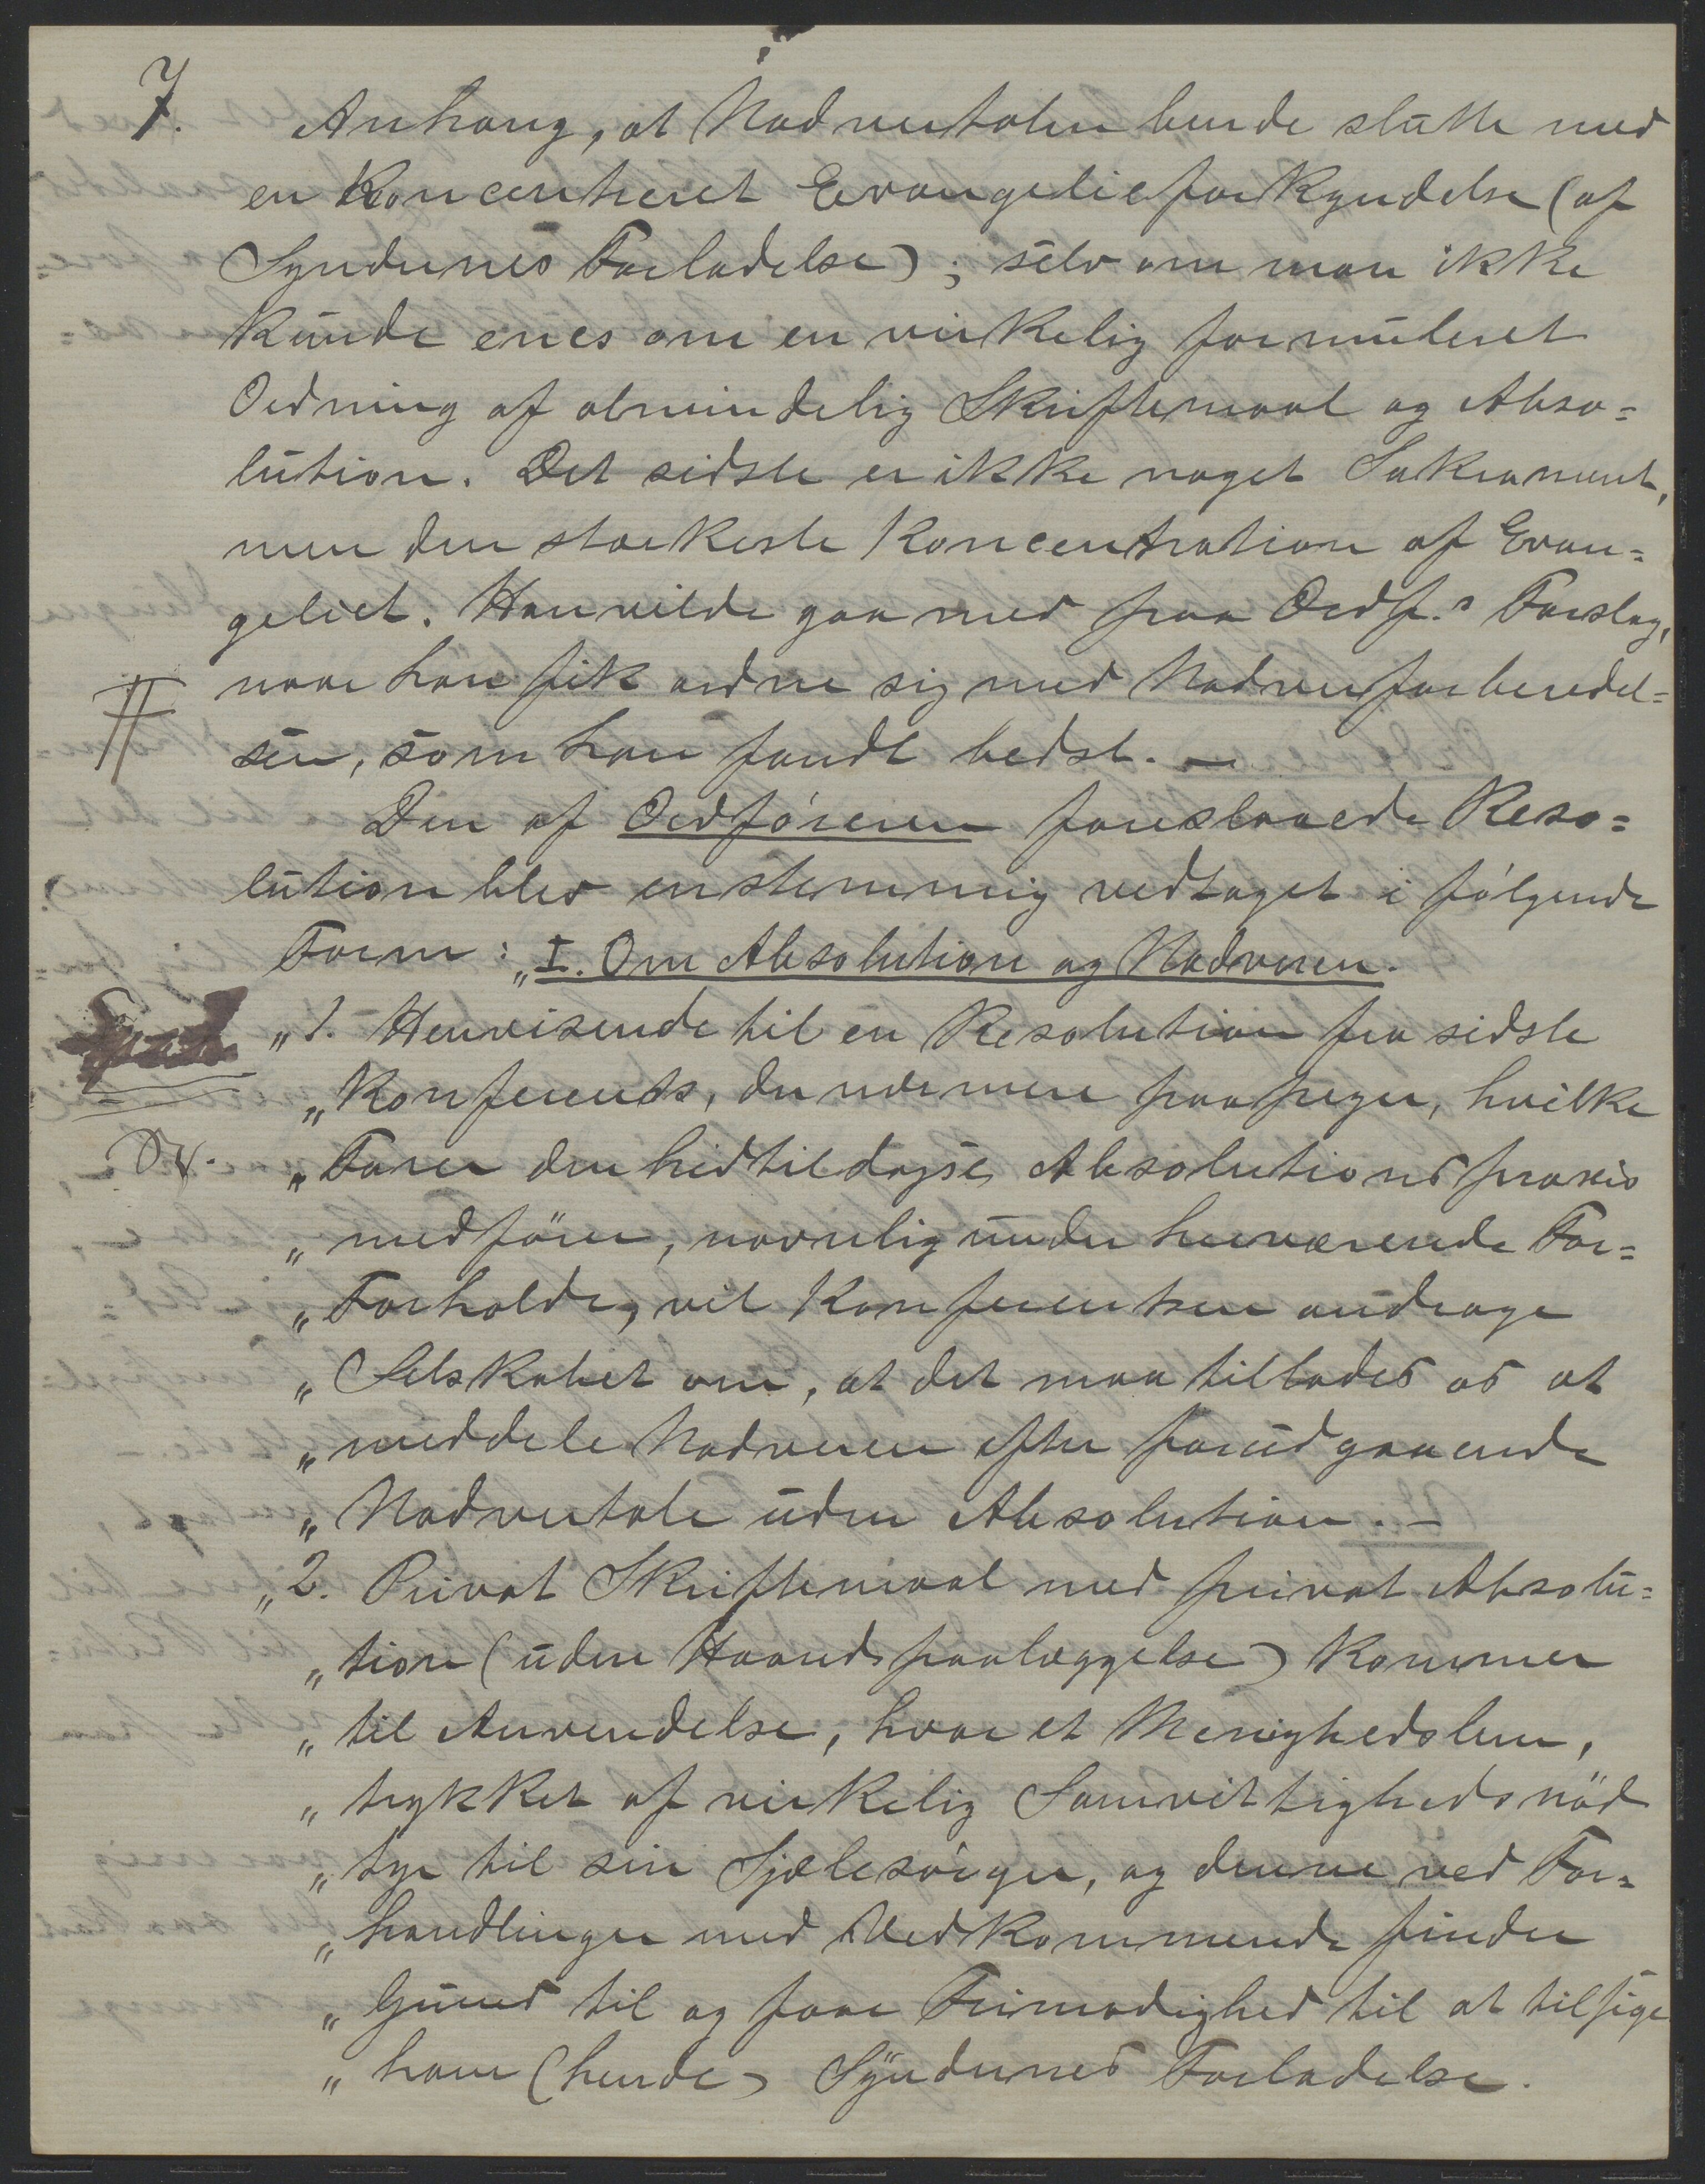 7. Anhang, at Nadvertalen burde slutte med
en koncentreret Evangelieforkyndelse (af
Syndernes Forladelse); selv om man ikke
kunde enes om en virkelig formuleret
Ordning af almindelig Skriftemaal og Abso=
lution. Det sidste er ikke noget Sakrament,
men den stærkeste Koncentration af Evan=
geliet. Han vilde gaa med paa Ordf.s Forslag,
naar han fik ordne sig med Nadverforberedel=
sen, som han fandt bedst. —
Den af Ordföreren foreslaaede Reso=
lution blev enstemmig vedtaget i fölgende
Form: „I. Om Absolution og Nadveren.
„1. Henvisende til en Resolution fra sidste
„Konferents, der nærmere paapeger, hvilke
„Farer den hidtildagse Absolutionspraxis
„medförer, navnlig under herværende For=
„Forholde, vil Konferentsen andrage
„Selskabet om, at det maa tillades os at
„meddele Nadveren efter forudgaaende
„Nadvertale uden Absolution. —
„2. Privat Skriftemaal med privat Absolu=
„tion (uden Haandspaalæggelse) kommer
„til Anvendelse, hvor et Menighedslem,
„trykket af virkelig Samvittighedsnöd
„tyr til sin Sjælesörger, og denne ved For=
„handlinger med Vedkommende finder
„Grund til og faar Frimodighed til at tilsige
„ham (hende) Syndernes Forladelse.